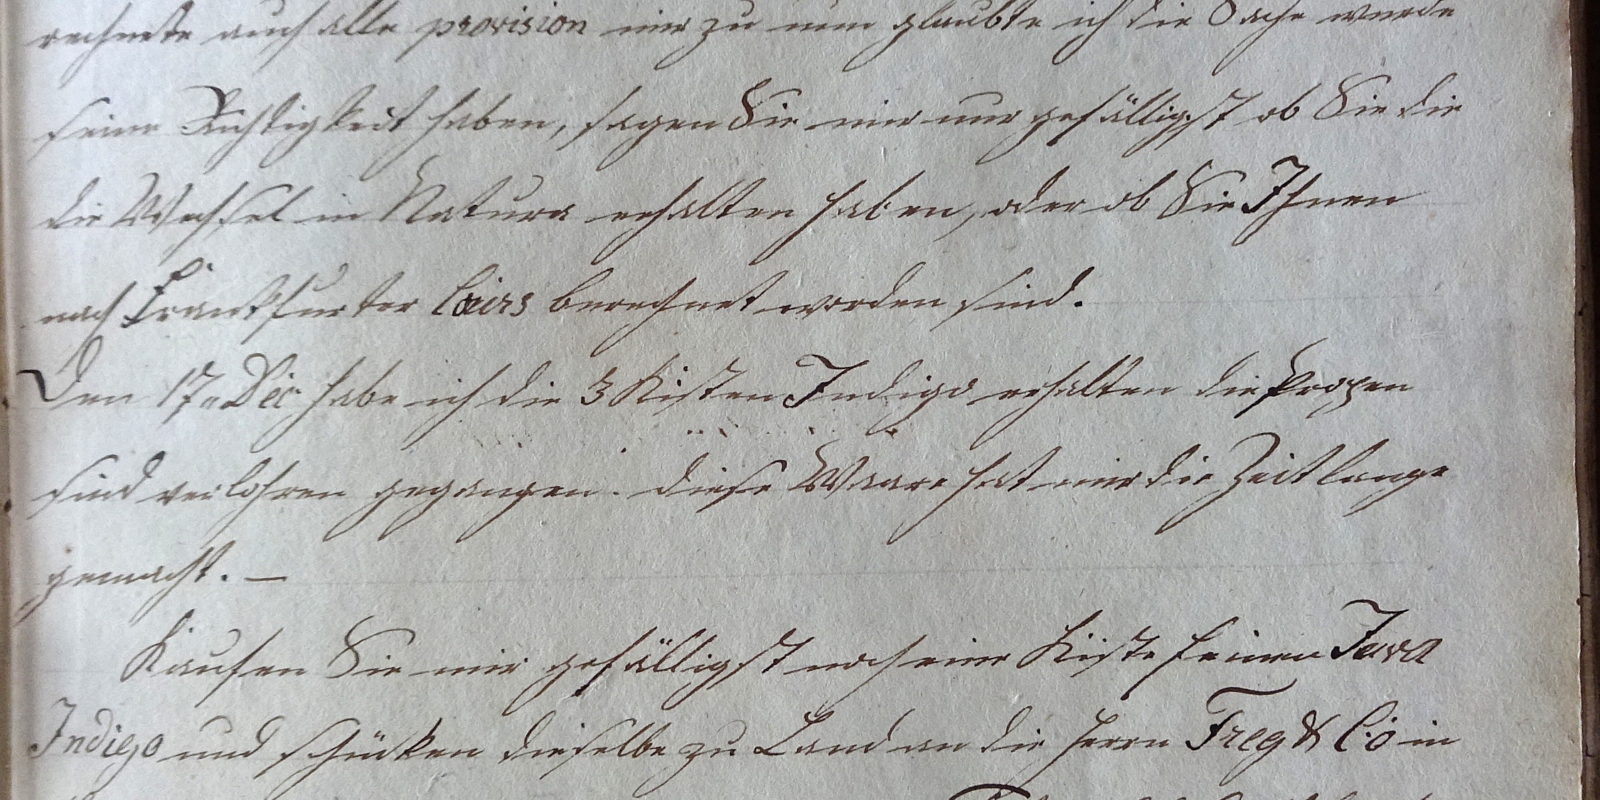 rechnete auch alle provision mir zu nun glaubte ich die Sache werde
seine Richtigkeit haben, sagen Sie mir nur gefälligst ob Sie die
die Wechsel in Natura erhalten haben, oder ob Sie Ihnen
nach Frankfurter Cours berechnet worden sind.
Den 17n Dec habe ich die 3 Kisten Indigo erhalten die
sind verlohren gegangen. diese Waare hat mir die Zeit lange
gemacht. —
Kaufen Sie mir gefälligst noch eine Kiste feinen Java
Indigo und schücken dieselbe zu Land an die Herrn Freg & Co in